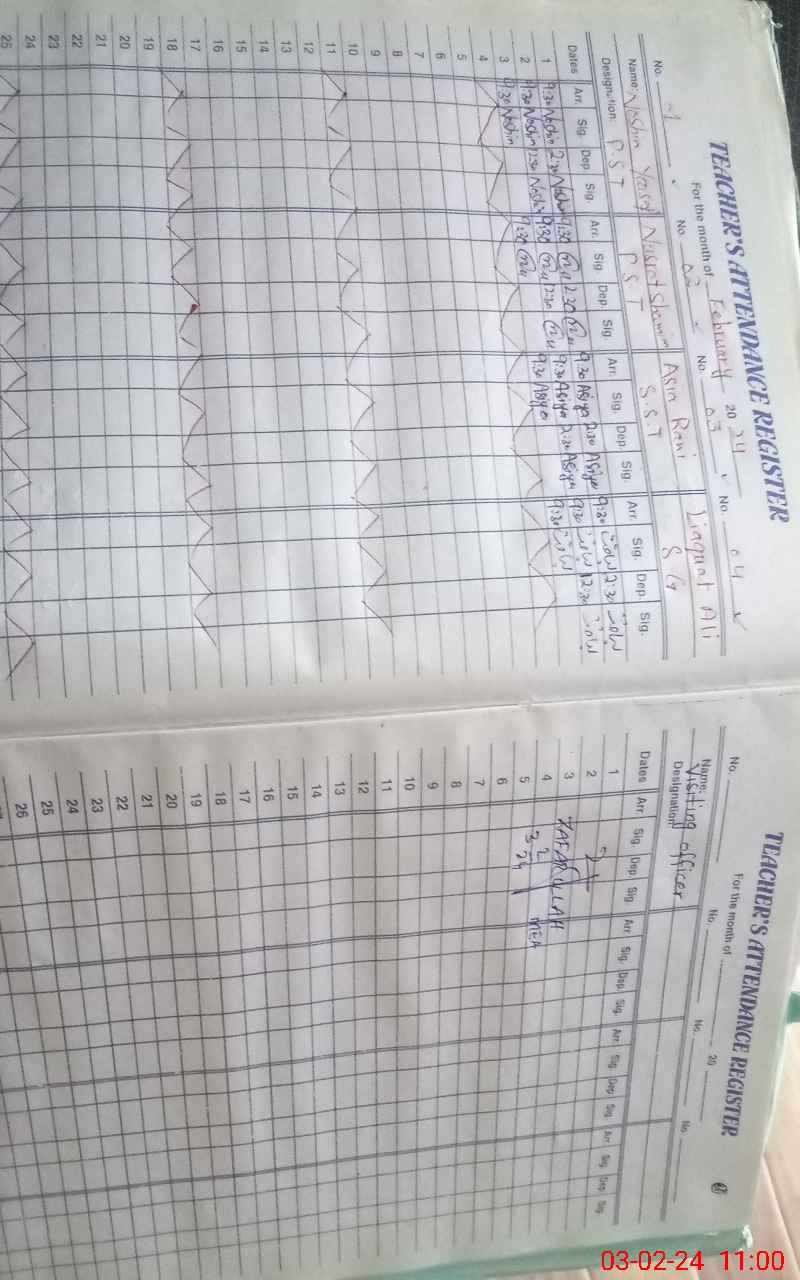 TEACHER'S ATTENDANCE REGISTER
For the month of February 2024
No. 1 No. 02 No. 03 No. 04
Name: Noshin Nusrat Shamim Asia Rani Liaquat Ali
Designation: P.S.T P.S.T S.S.T S.G
Dates Arr. Sig. Dep Sig. Arr. Sig. Dep. Sig. Arr. Sig. Dep. Sig. Arr. Sig. Dep. Sig.
1 9:30 Noshin 2:30 Noshin 9:30 2:30 9:30 Asiya 2:30 Asiya 9:30 لیاقت 2:30 لیاقت
2 9:30 Noshin 2:30 Noshin 9:30 2:30 9:30 Asiya 2:30 Asiya 9:30 لیاقت 2:30 لیاقت
3 9:30 Noshin 9:30 9:30 Asiya 9:30 لیاقت
4
5
6
7
8
9
10
11
12
13
14
15
16
17
18
19
20
21
22
23
24
25
TEACHER'S ATTENDANCE REGISTER
For the month of 20
No. No. No. No.
Name: Visiting officer
Designation:
Dates Arr. Sig. Dep Sig. Arr. Sig. Dep. Sig. Arr. Sig. Dep Sig. Arr. Sig. Dep Sig.
1
2
3 ZAFARULLAH
4 3 2
5 24 MEA
6
7
8
9
10
11
12
13
14
15
16
17
18
19
20
21
22
23
24
25
26
03-02-24 11:00